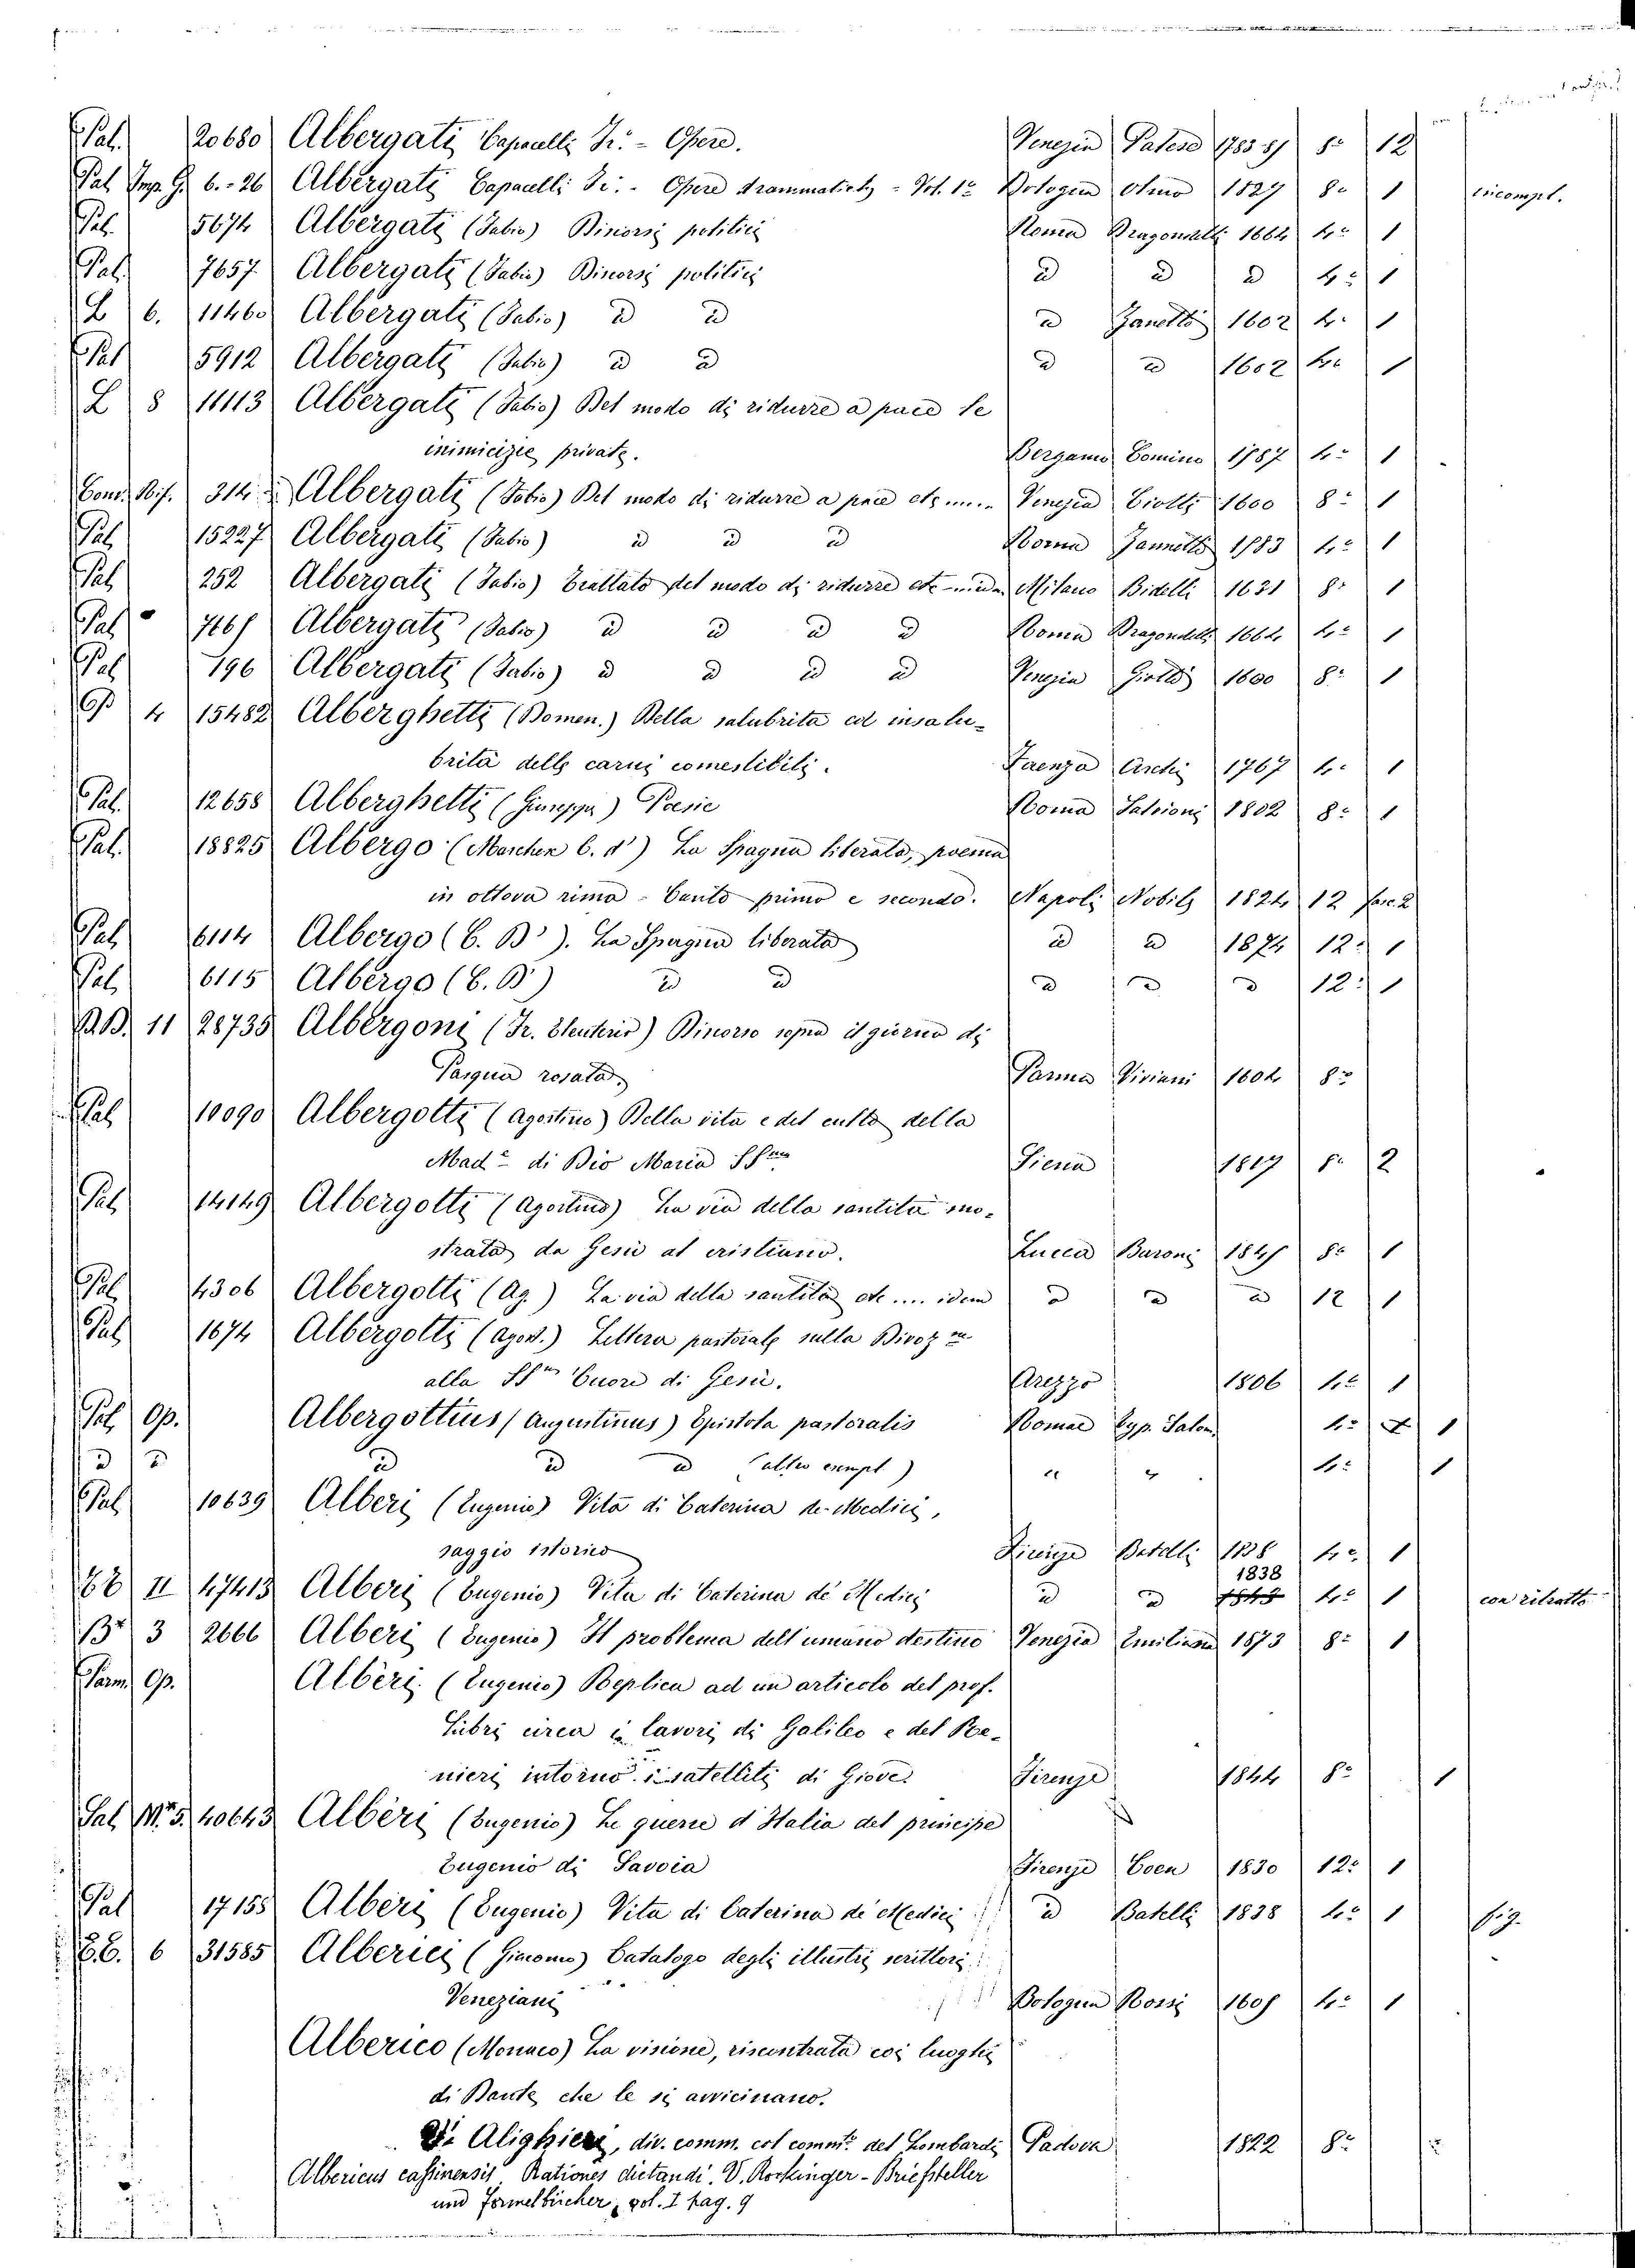 Pal. 20680 Albergati Capacelli Fr. - Opere. Venezia Palese 1783 85 8° 12
Pal Imp. G. 6.-26 Albergati Capacelli Fr. - Opere drammatiche - Vol. 1° Bologna Olmo 1827 8° 1 incompl.
Pal. 5674 Albergati (Fabio) Discorsi politici Roma Dragondelli 1664 4° 1
Pal. 7657 Albergati (Fabio) Discorsi politici id id id 4° 1
L 6. 11460 Albergati (Fabio) id id id Zanetti 1602 4° 1
Pal 5912 Albergati (Fabio) id id id id 1602 4° 1
L 8 11113 Albergati (Fabio) Del modo di ridurre a pace le
inimicizie private. Bergamo Comino 1587 4° 1
Cons. Rif. 314 Albergati (Fabio) Del modo di ridurre a pace etc Venezia Ciotti 1600 8° 1
Pal 15227 Albergati (Fabio) id id id Roma Zannetti 1583 4° 1
Pal 252 Albergati (Fabio) Trattato del modo di ridurre etc - Milano Bidelli 1621 8° 1
Pal 7165 Albergati (Fabio) id id id id Roma Dragondelli 1664 4° 1
Pal 196 Albergati (Fabio) id id id id Venezia Ciotti 1600 8° 1
P 4 15482 Alberghetti (Domen.) Della salubrità ed insalu-
brità delle carni comestibili. Faenza Archi 1767 4° 1
Pal. 12658 Alberghetti (Giuseppe) Poesie Roma Salvioni 1802 8° 1
Pal. 18825 Albergo (Marchese C. d') La Spagna liberata, poema
in ottava rima - Canto primo e secondo. Napoli Nobile 1824 12 fasc. 2
Pal 6114 Albergo (C. D'). La Spagna liberata id id 1824 12° 1
Pal. 6115 Albergo (C. D') id id id id id 12° 1
11 28735 Albergoni (Fr. Eleuterio) Discorso sopra il giorno di
Pasqua rosata. Parma Viviani 1604 8°
Pal 10090 Albergotti (Agostino) Della vita e del culto della
Mad.e di Dio Maria SSma Siena 1819 8° 2
Pal 14149 Albergotti (Agostino) La via della santità mo-
strata da Gesù al cristiano. Lucca Baroni 1845 8° 1
Pal 4306 Albergotti (Ag.) La via della santità etc .... idem id id id 12 1
Pal 1674 Albergotti (Agost.) Lettera pastorale sulla Divoz ne
alla SSmo Cuore di Gesù. Arezzo 1806 4° 1
Pal Op. Albergottius (Augustinus) Epistola pastoralis Romae Typ. Salom. 4° 1
id id id id id (altro esempl.) " " 4° 1
Pal 10639 Alberi (Eugenio) Vita di Caterina de-Medici,
saggio istorico Firenze Batelli 1838 4° 1
II 47413 Alberi (Eugenio) Vita di Caterina de Medici id id 1838 4° 1 con ritratto
B 3 2666 Alberi (Eugenio) Il problema dell'umano destino Venezia Emiliana 1873 8° 1
Op. Albèri (Eugenio) Replica ad un articolo del prof.
Libri circa i lavori di Galileo e del Re-
nieri intorno i satelliti di Giove. Firenze 1844 8° 1
Sal M. 5. 40643 Albèri (Eugenio) Le guerre d'Italia del principe
Eugenio di Savoia Firenze Coen 1830 12° 1
Pal 17155 Albèri (Eugenio) Vita di Caterina de Medici id Batelli 1838 4° 1 fig.
B.B. 6 31585 Alberici (Giacomo) Catalogo degli illustri scrittori
Veneziani Bologna Rossi 1605 4° 1
Alberico (Monaco) La visione, riscontrata coi luoghi
di Dante che le si avvicinano.
V. Alighieri, div. comm. col comm.to del Lombardi Padova 1822 8°
Albericus cassinensis. Rationes dictandi. V. Rockinger - Briefsteller
und Formelbücher, vol. I pag. 9